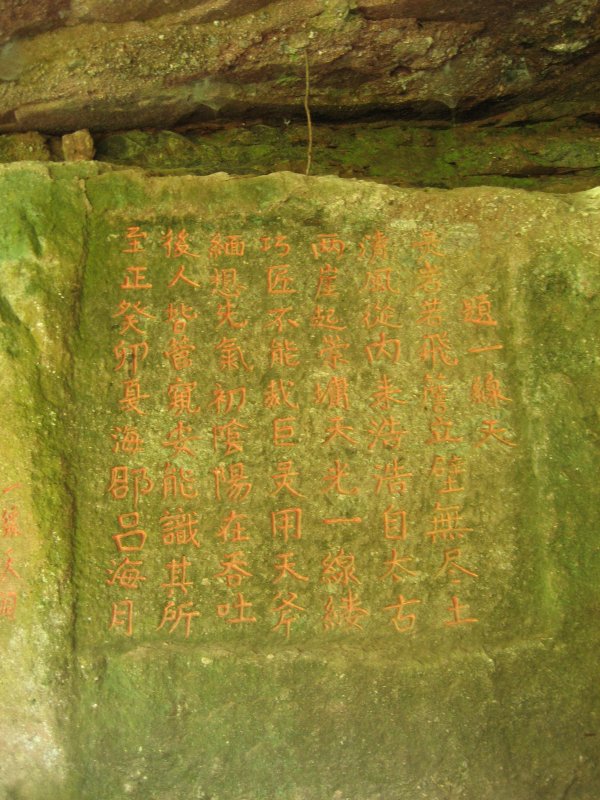 題一線天
岩若飛簷立壁無尽土
清風從内来浩浩自太古
两崖起崇墉天光一線縷
巧匠不能裁巨灵用天斧
緬想先氣初陰陽在吞吐
後人皆管窺安能識其所
至正癸卯夏海郡吕海月
一線天